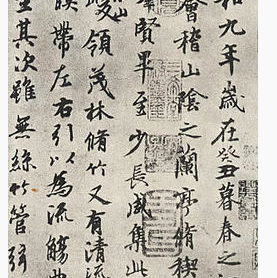 和九年歲在癸丑暮春之
會稽山陰之蘭亭脩禊
羣賢畢至少長咸集此
山峻領茂林脩竹又有清流
映帶左右引以為流觴曲
坐其次雖無絲竹管弦